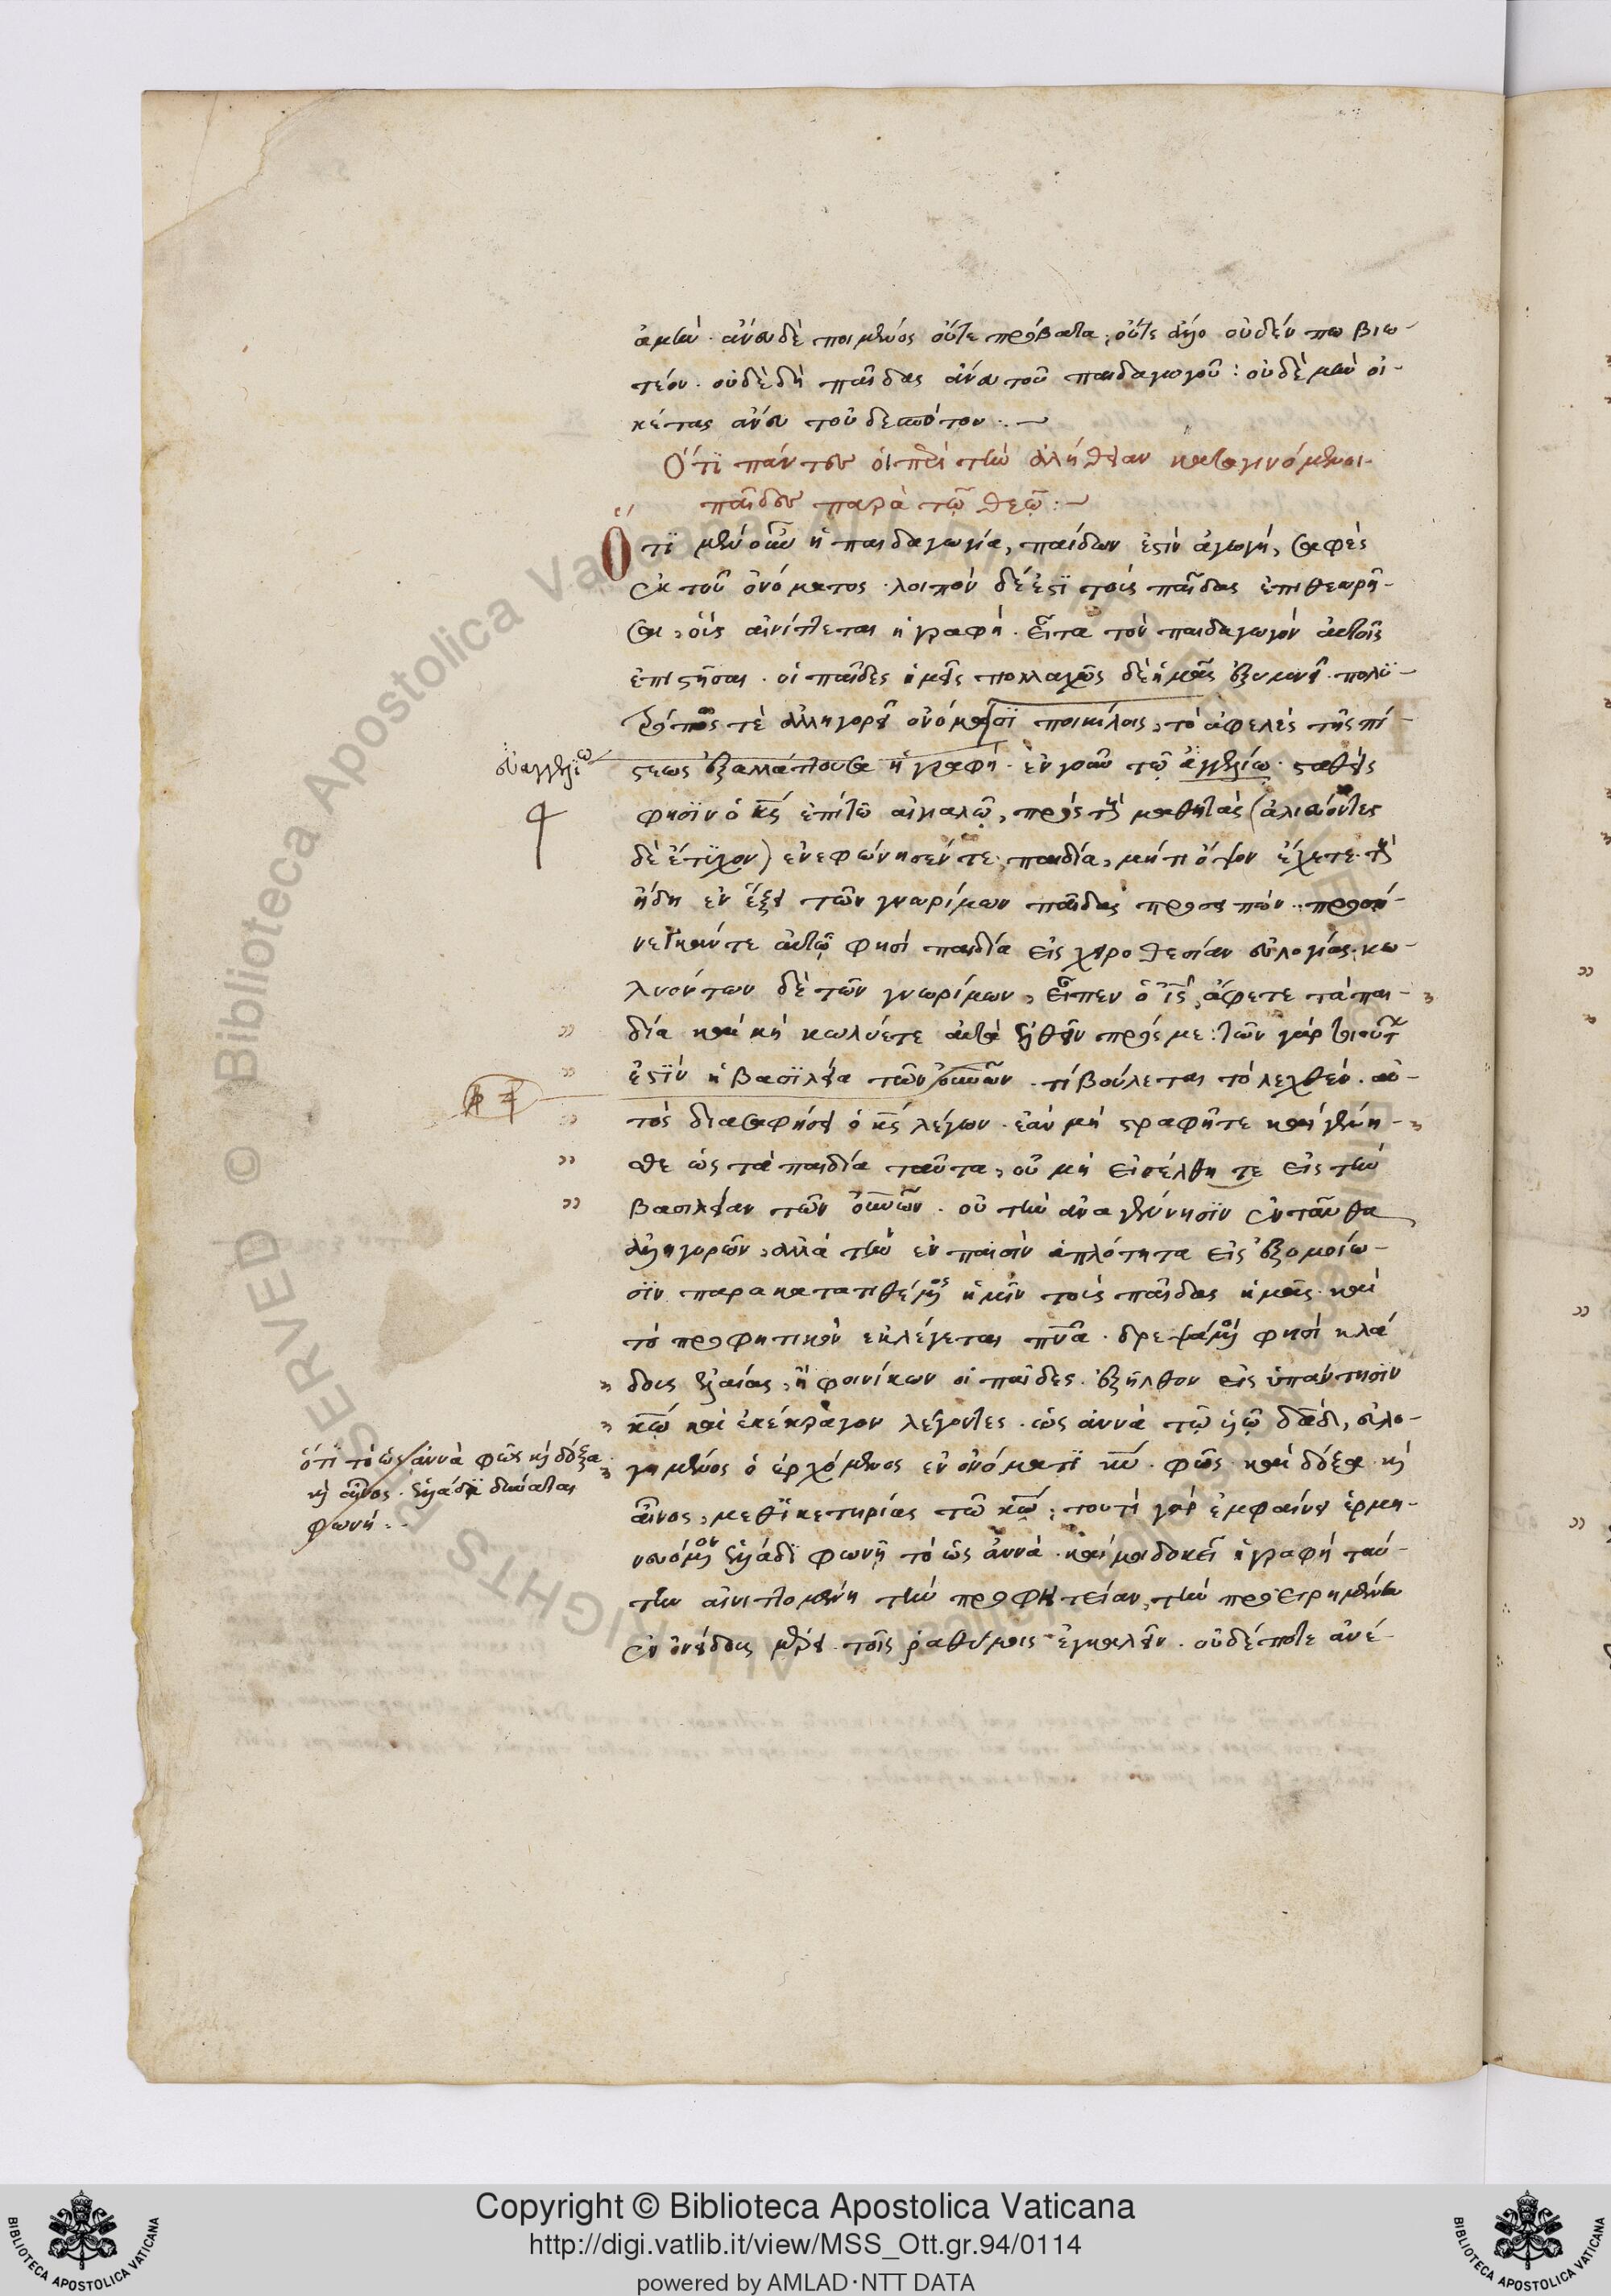 ἀμὴν. ἄνευ δὲ ποιμένος οὔτε πρόβατα, οὔτε ἄλλο οὐδέν πω βιω-
τέον. οὐδὲ δὴ παῖδας ἄνευ τοῦ παιδαγωγοῦ: οὐδὲ μὴν οἰ-
κέτας ἄνευ τοῦ δεσπότου.
Ὅτι πάντες οἱ περὶ τὴν ἀλήθειαν καταγινόμενοι
παῖδες παρὰ τῷ θεῷ:
Ὅτι μὲν οὖν ἡ παιδαγωγία, παίδων ἐστὶν ἀγωγή, σαφὲς
ἐκ τοῦ ὀνόματος. λοιπὸν δέ ἐστι τοὺς παῖδας ἐπιθεωρῆ-
σαι, οὓς αἰνίττεται ἡ γραφή. εἶτα τὸν παιδαγωγὸν αὐτοῖς
ἐπιστῆσαι. οἱ παῖδες ἡμεῖς πολλαχῶς δὲ ἡμᾶς ἐξυμνεῖ. πολυ-
τρόπως τὲ ἀλληγορεῖ ὀνόμασι ποικίλοις, τὸ ἀφελὲς τῆς πί-
εὐαγγελίω
στεως ἐξαλλάττουσα ἡ γραφή. ἐν γοῦν τῷ ἀγγελίω. σταθεὶς
φησὶν ὁ κς ἐπὶ τῶ αἰγιαλῷ, πρὸς τοὺς μαθητὰς (ἁλιεύοντες
δὲ ἔτυχον) ἐνεφώνησέν τε. παιδία, μή τι ὄψον ἔχετε. τοὺς
ἤδη ἐν ἕξει τῶν γνωρίμων παῖδας προσειπών. προσή-
νεγκάν τε αὐτῷ φησὶ παιδία εἰς χειροθεσίαν εὐλογίας. κω-
λυόντων δὲ τῶν γνωρίμων, εἶπεν ὁ ις, ἄφετε τὰ παι-
δία καὶ μὴ κωλύετε αὐτὰ ἐλθεῖν πρός με: τῶν γὰρ τοιούτ
ἐστὶν ἡ βασιλεία τῶν οὐνῶν. τί βούλεται τὸ λεχθέν. αὐ-
τὸς διασαφήσει ὁ κς λέγων. ἐὰν μὴ στραφῆτε καὶ γένη-
σθε ὡς τὰ παιδία ταῦτα, οὐ μὴ εἰσέλθητε εἰς τὴν
βασιλείαν τῶν οὐνῶν. οὐ τὴν ἀναγέννησιν ἐνταῦθα
ἀλληγορῶν, ἀλλὰ τὴν ἐν παισὶν ἁπλότητα εἰς ἐξομοίω-
σιν παρακατατιθέμενος ἡμῖν τοὺς παῖδας ἡμᾶς. καὶ
τὸ προφητικὸν ἐκλέγεται πνα. δρεψάμενοι φησὶ κλά
δους ἐλαίας, ἢ φοινίκων οἱ παῖδες. ἐξῆλθον εἰς ὑπάντησιν
κω καὶ ἐκέκραγον λέγοντες. ὡς ἀννὰ τῷ υἱῷ δαδ, εὐλο-
γημένος ὁ ἐρχόμενος ἐν ὀνόματι κυ. φῶς. καὶ δόξα. καὶ
αἶνος, μεθ' ἱκετηρίας τῶ κω: τουτὶ γὰρ ἐμφαίνει ἑρμη-
νευόμενον Ἑλλάδι φωνῇ τὸ ὡς ἀννά. καί μοι δοκεῖ ἡ γραφὴ ταύ-
την αἰνιττομένη τὴν προφητείαν, τὴν προειρημένην
ἐν ὀνείδους μέρει. τοῖς ῥαθύμοις ἐγκαλεῖν. οὐδέποτε ἀνέ-
ὅτι τὸ ὡς ἀννὰ φῶς καὶ δόξα
καὶ αἶνος. Ἑλλάδι δύναται
φωνῇ:
Copyright © Biblioteca Apostolica Vaticana
http://digi.vatlib.it/view/MSS_Ott.gr.94/0114
powered by AMLAD·NTT DATA
BIBLIOTECA APOSTOLICA VATICANA
BIBLIOTECA APOSTOLICA VATICANA